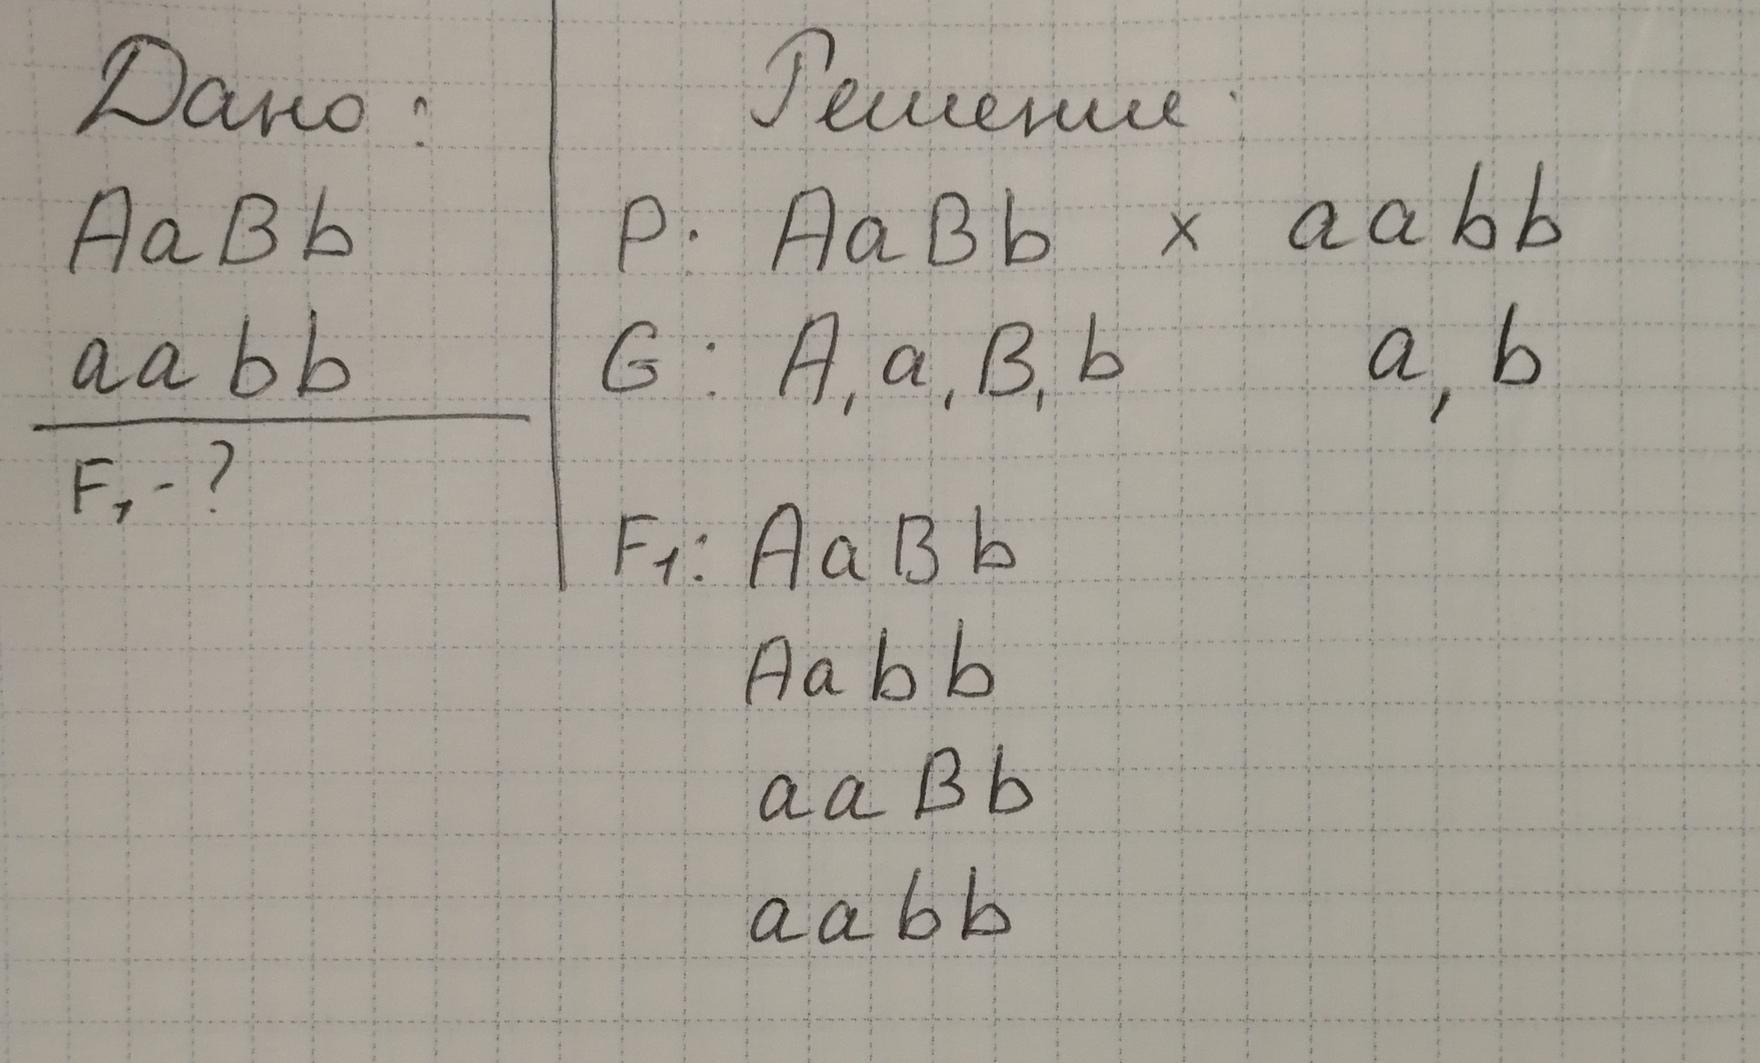 Дано:
AaBb
aabb
F₁-?
Решение:
P. AaBb x aabb
G: A, a, B, b a, b
F₁: AaBb
Aabb
aaBb
aabb